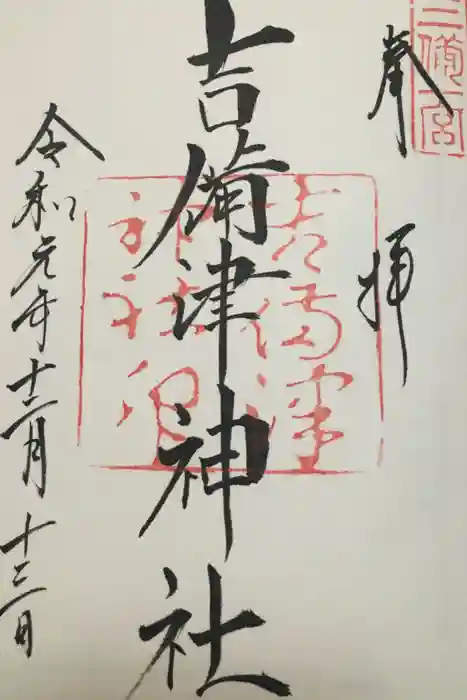 三備一宮
奉拝
吉備津神社
吉備津
神社印
令和元年十二月十三日